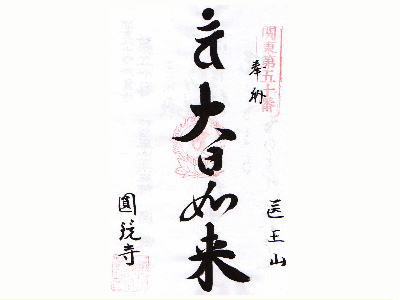 関東第五十番
奉納
医王山
大日如来
圓鏡寺